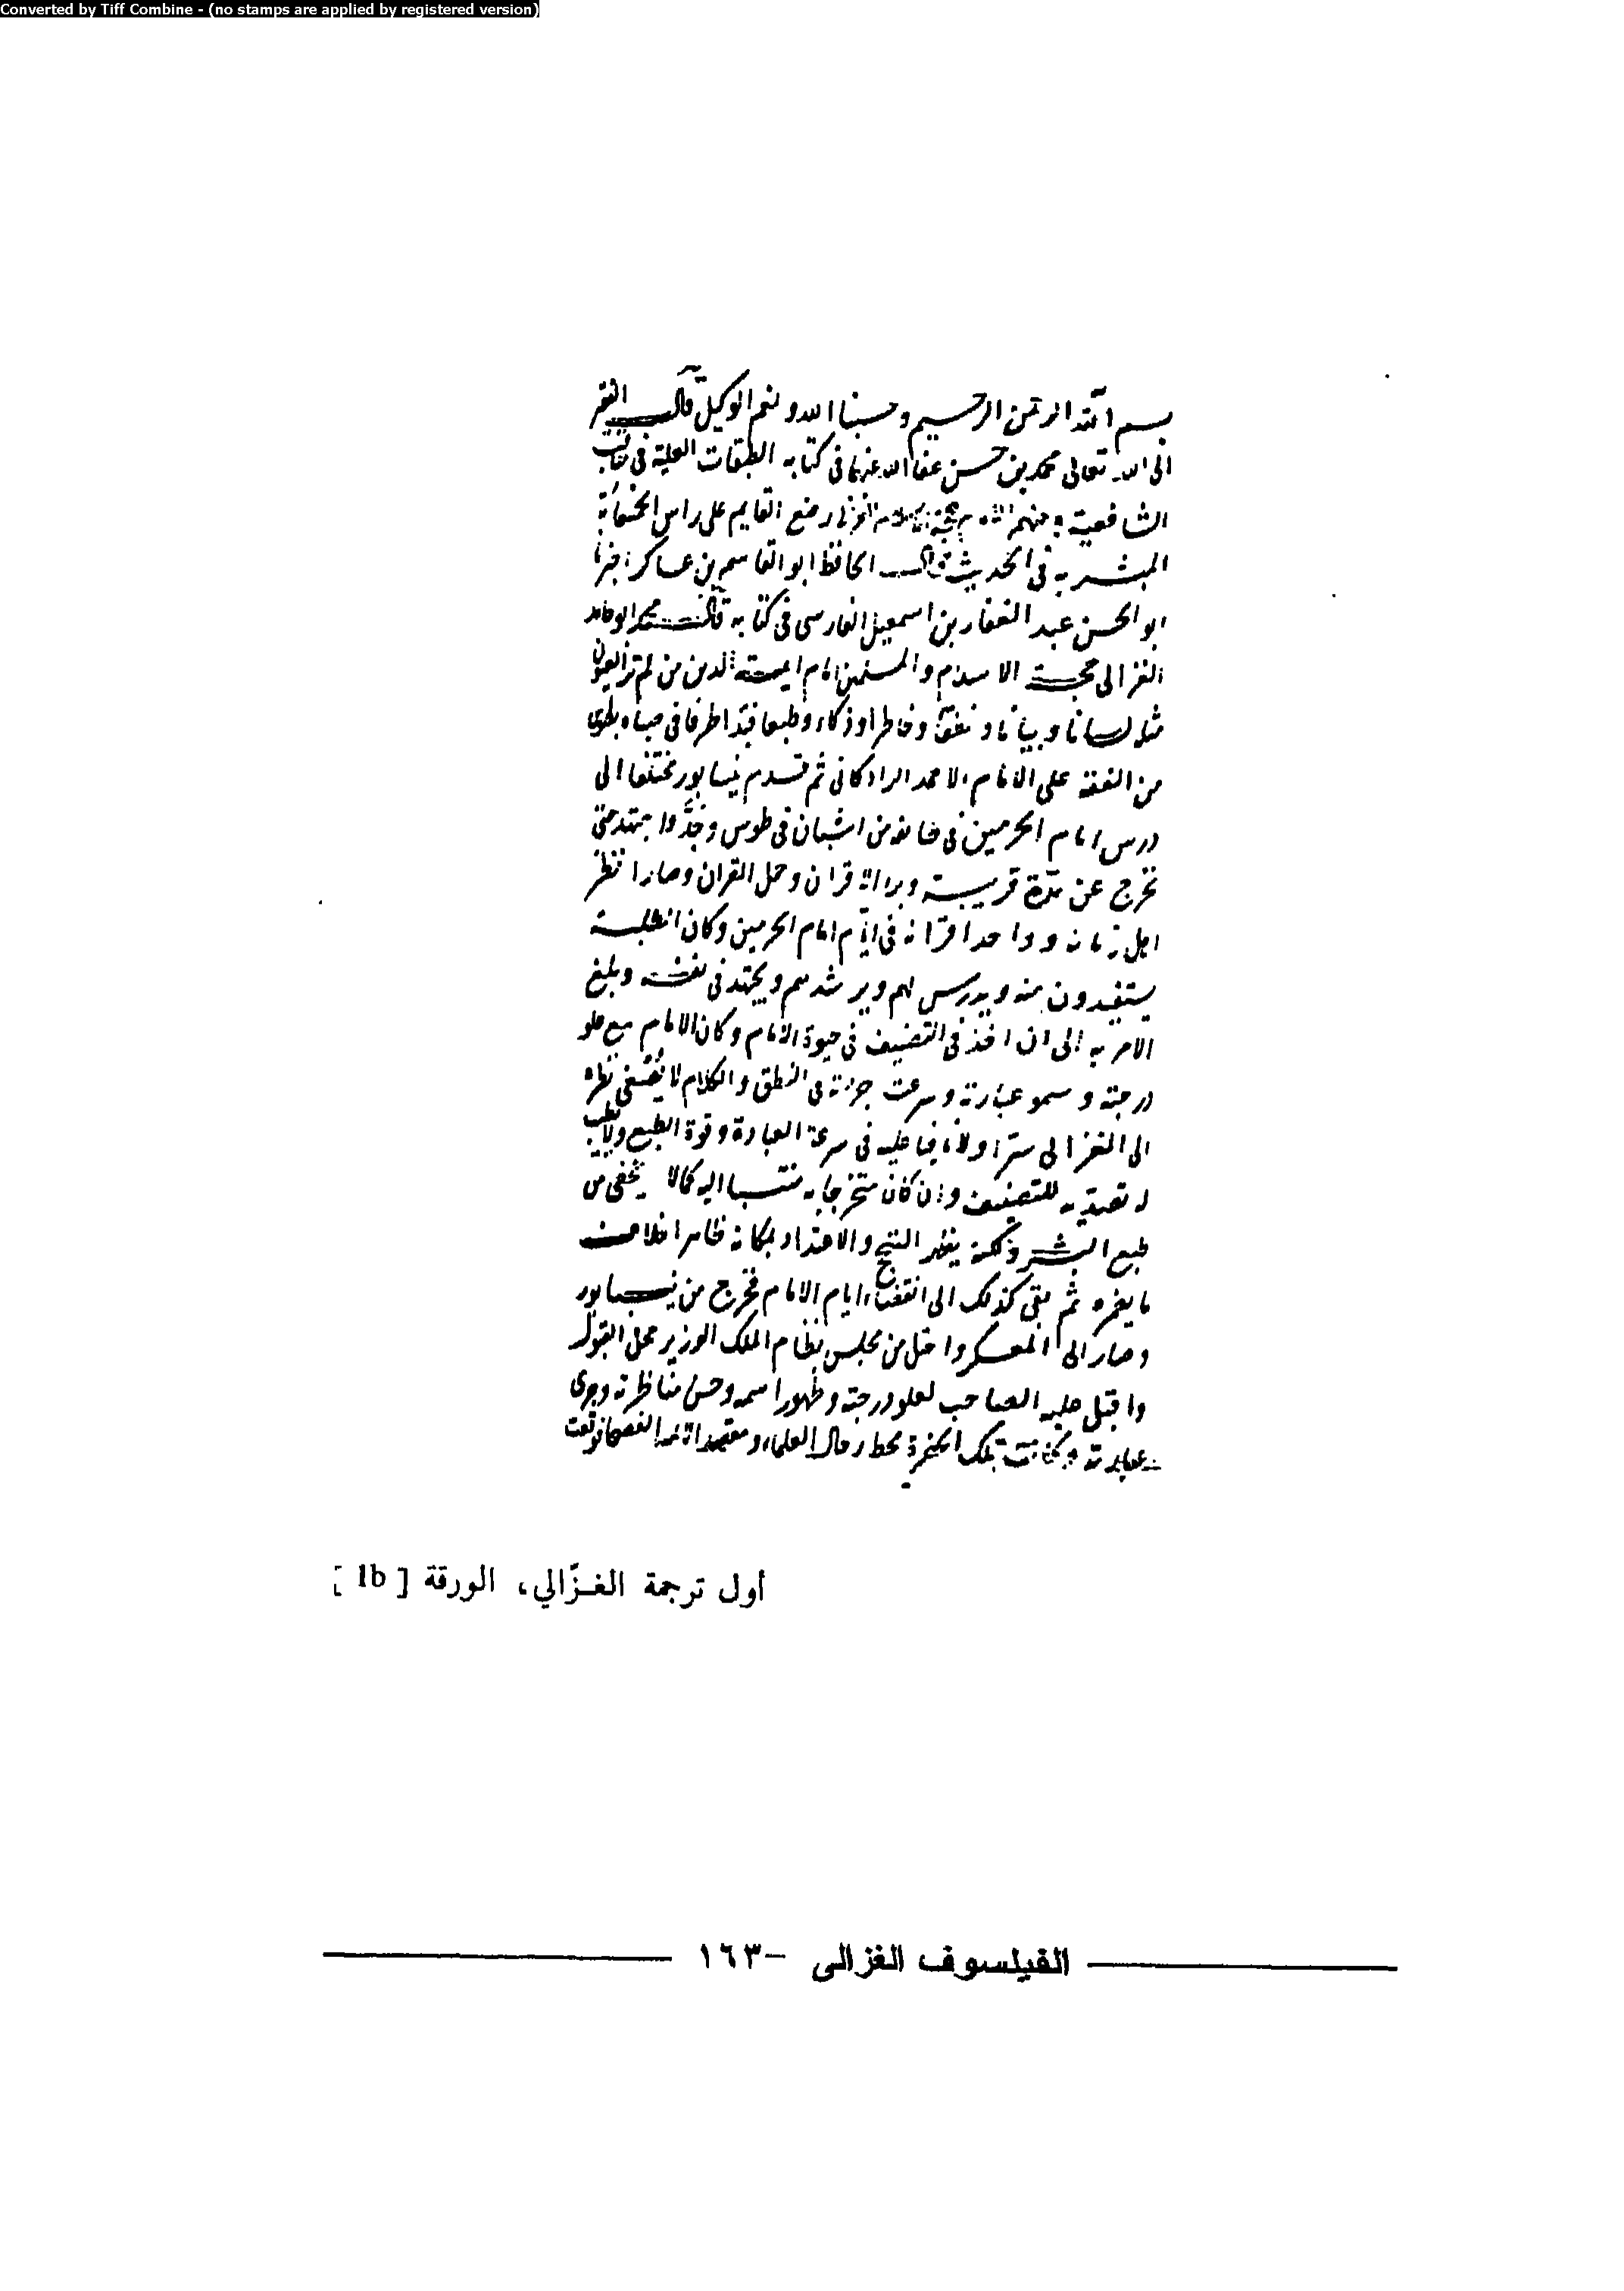 Converted by Tiff Combine - (no stamps are applied by registered version)
بسم الله الرحمن الرحيم وحسبنا الله ونعم الوكيل قال الفقير
الى الله تعالى محمد بن حسن عفا الله عنهما فى كتابه الطبقات العلية فى مناقب
الشافعية ومنهم القايم على راس الخمسمائة
المبشر به فى الحديث قال الحافظ ابو القاسم بن عساكر اخبرنا
ابو الحسن عبد الغفار بن اسمعيل الفارسى فى كتابه قال محمد ابو حامد
الغزالى حجة الاسلام والمسلمين امام ايمة الدين من لم تر العيون
مثله لسانا وبيانا و نطقا وخاطرا وذكاء وطبعا شدا طرفا فى صباه بطوس
من الفقه على الامام الاحمد الرادكانى ثم قدم نيسابور مختلفا الى
درس امام الحرمين فى طايفة من الشبان فى طوس وجد واجتهد حتى
تخرج عن مدة قريبة وبز الاقران وحمل القران وصار انظر
اهل زمانه وواحد اقرانه فى ايام امام الحرمين وكان الطلبة
يستفيدون منه ويدرس لهم ويرشدهم ويجتهد فى نفسه وبلغ
الامر به الى ان اخذ فى التصنيف فى حيوة الامام وكان الامام مع علو
درجته وسمو عبارته وسرعة جريه فى النطق والكلام لا يصغى نظره
الى الغزالى سترا ولانافيا عليه فى سرعة العبارة وقوة الطبع ولا يطيب
له تصديه للتصنيف وان كان متخرجا به منتسبا اليه كما لا يخفى من
طبع البشر ولكنه يظهر التبجح والاعتداد بمكانه ظاهرا خلاف
ما يضمره ثم بقى كذلك الى انقضاء ايام الامام فخرج من نيسابور
وصار الى المعسكر واحتل من مجلس نظام الملك الوزير محل القبول
واقبل عليه الصاحب لعلو درجته وظهور اسمه وحسن مناظرته وجرى
عبارته وكانت تلك الحضرة محط رحال العلماء ومقصد الائمة الفصحا فوقعت
أول ترجمة الغزّالي، الورقة [1b]
الفيلسوف الغزالى -١٦٣